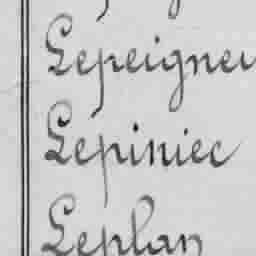 Lepeigneu
Lepiniec
Leplan